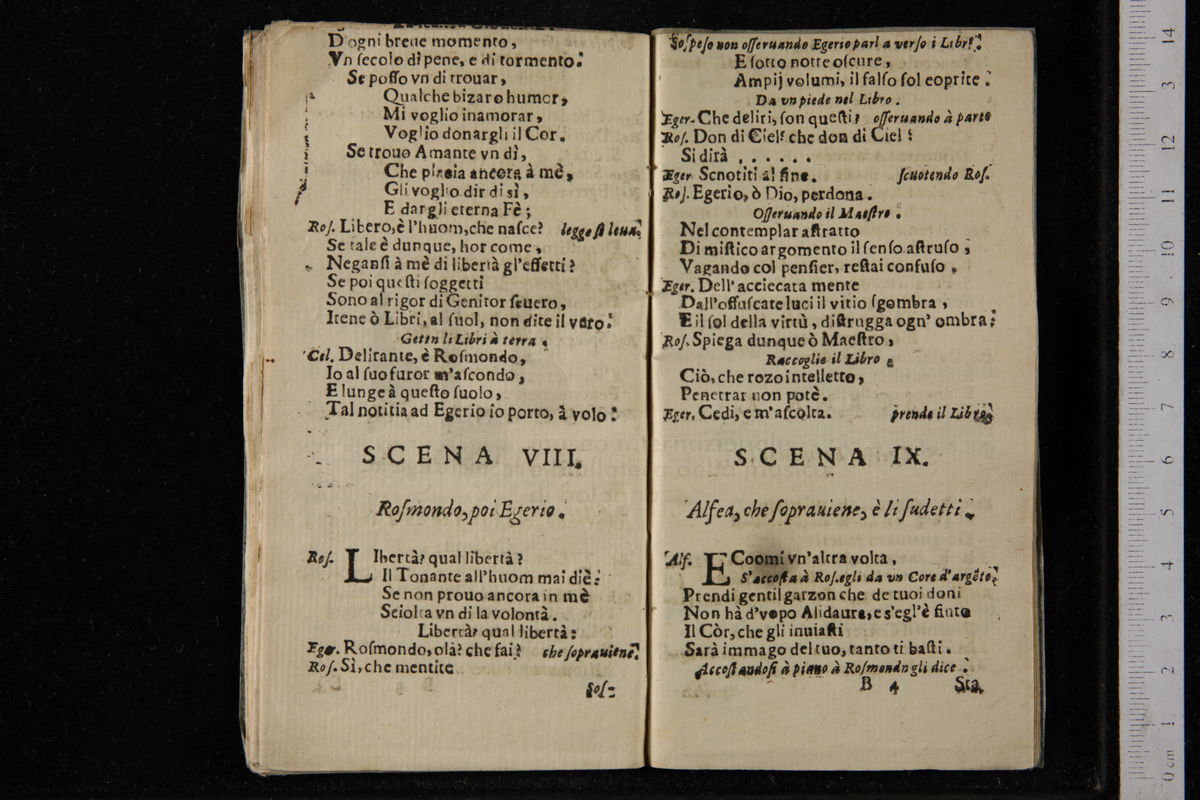 D'ogni breue momento,
Vn ſecolo di pene, e di tormento.
Se poſſo vn di trouar,
Qualche bizaro humor,
Mi voglio inamorar,
Voglio donargli il Cor.
Se trouo Amante vn dì,
Che piaccia ancora à mè,
Gli voglio dir di sì,
E dargli eterna Fè;
Roſ. Libero, è l'huom, che naſce? legge ſi leua.
Se tale è dunque, hor come,
Neganſi à mè di libertà gl'effetti?
Se poi queſti ſoggetti
Sono al rigor di Genitor ſeuero,
Itene ò Libri, al ſuol, non dite il vero.
Getta li Libri à terra.
Cel. Delirante, è Roſmondo,
Io al ſuo furor m'aſcondo,
E lunge à queſto ſuolo,
Tal notitia ad Egerio io porto, à volo.
SCENA VIII.
Roſmondo, poi Egerio.
Roſ. LIbertà? qual libertà?
Il Tonante all'huom mai diè.
Se non prouo ancora in mè
Sciolta vn di la volontà.
Libertà? qual libertà?
Eger. Roſmondo, olà? che fai? che ſoprauiene.
Roſ. Sì, che mentite
Soſ-
Soſpeſo non oſſeruando Egerio parla verſo i Libri.
E ſotto notte oſcure,
Ampij volumi, il falſo ſol coprite.
Da vn piede nel Libro.
Eger. Che deliri, ſon queſti? oſſeruando à parte
Roſ. Don di Ciel? che don di Ciel?
Si dirà . . . . . .
Eger Scnotiti al fine. ſcuotendo Roſ.
Roſ. Egerio, ò Dio, perdona.
Oſſeruando il Maeſtro.
Nel contemplar aſtratto
Di miſtico argomento il ſenſo aſtruſo,
Vagando col penſier, reſtai confuſo,
Eger. Dell'acciecata mente
Dall'offuſcate luci il vitio ſgombra,
E il ſol della virtù, diſtrugga ogn'ombra.
Roſ. Spiega dunque ò Maeſtro,
Raccoglie il Libro
Ciò, che rozo intelletto,
Penetrar non potè.
Eger. Cedi, e m'aſcolta. prende il Libro
SCENA IX.
Alfea, che ſoprauiene, è li ſudetti.
Alf. ECcomi vn'altra volta,
S'accoſta à Roſ. egli da vn Core d'argẽto.
Prendi gentil garzon che de tuoi doni
Non hà d'vopo Alidaura, e s'egl'è finto
Il Còr, che gli inuiaſti
Sarà immago del tuo, tanto ti baſti.
Accoſtandoſi à piano à Roſmondo gli dice.
B 4 Sta,